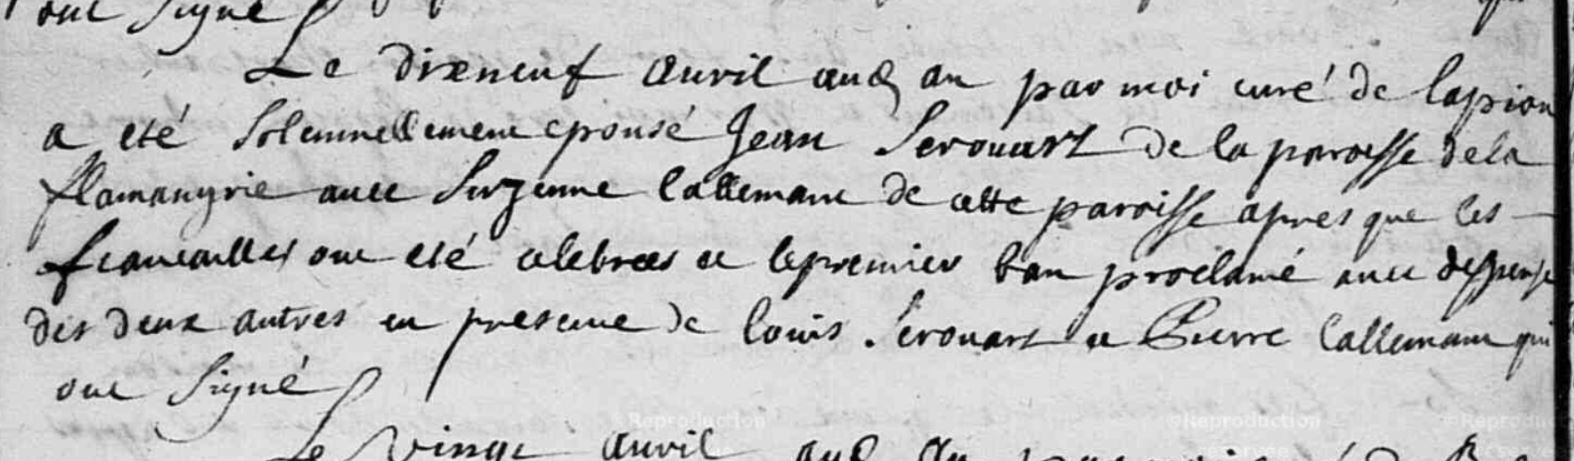 ont signé
Le dixneuf avril aud an par moi curé de lapion
a eté solemnellement epousé Jean Serouart de la paroisse de la
flamangrie avec Suzenne lallemant de cette paroisse apres que les
fiancailles ont eté celebrees et le premier ban proclamé avec dispense
des deux autres en presence de louis Serouart et Pierre lallemant qui
ont signé
Le vingt avril aud an
Reproduction ©Reproduction ©Reproduction